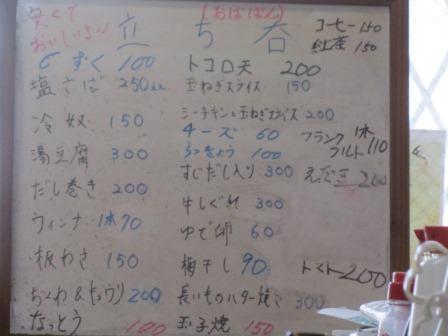 安くて
おいしいよ~
(おばばん)
立ち呑
コーヒー 150
紅茶 150
もずく 100
塩さば 250
冷奴 150
湯豆腐 300
だし巻き 200
ウィンナ 1本70
板わさ 150
ちくわ&キュウリ 200
なっとう 100
トコロ天 200
玉ねぎスライス 150
シーチキンと玉ねぎスライス 200
チーズ 60
らっきょう 100
すじだし入り 300
牛しぐれ 300
ゆで卵 60
梅干し 90
長いものバター焼き 300
玉子焼 150
フランク 1本
フルト 110
えだ豆 200
トマト 200